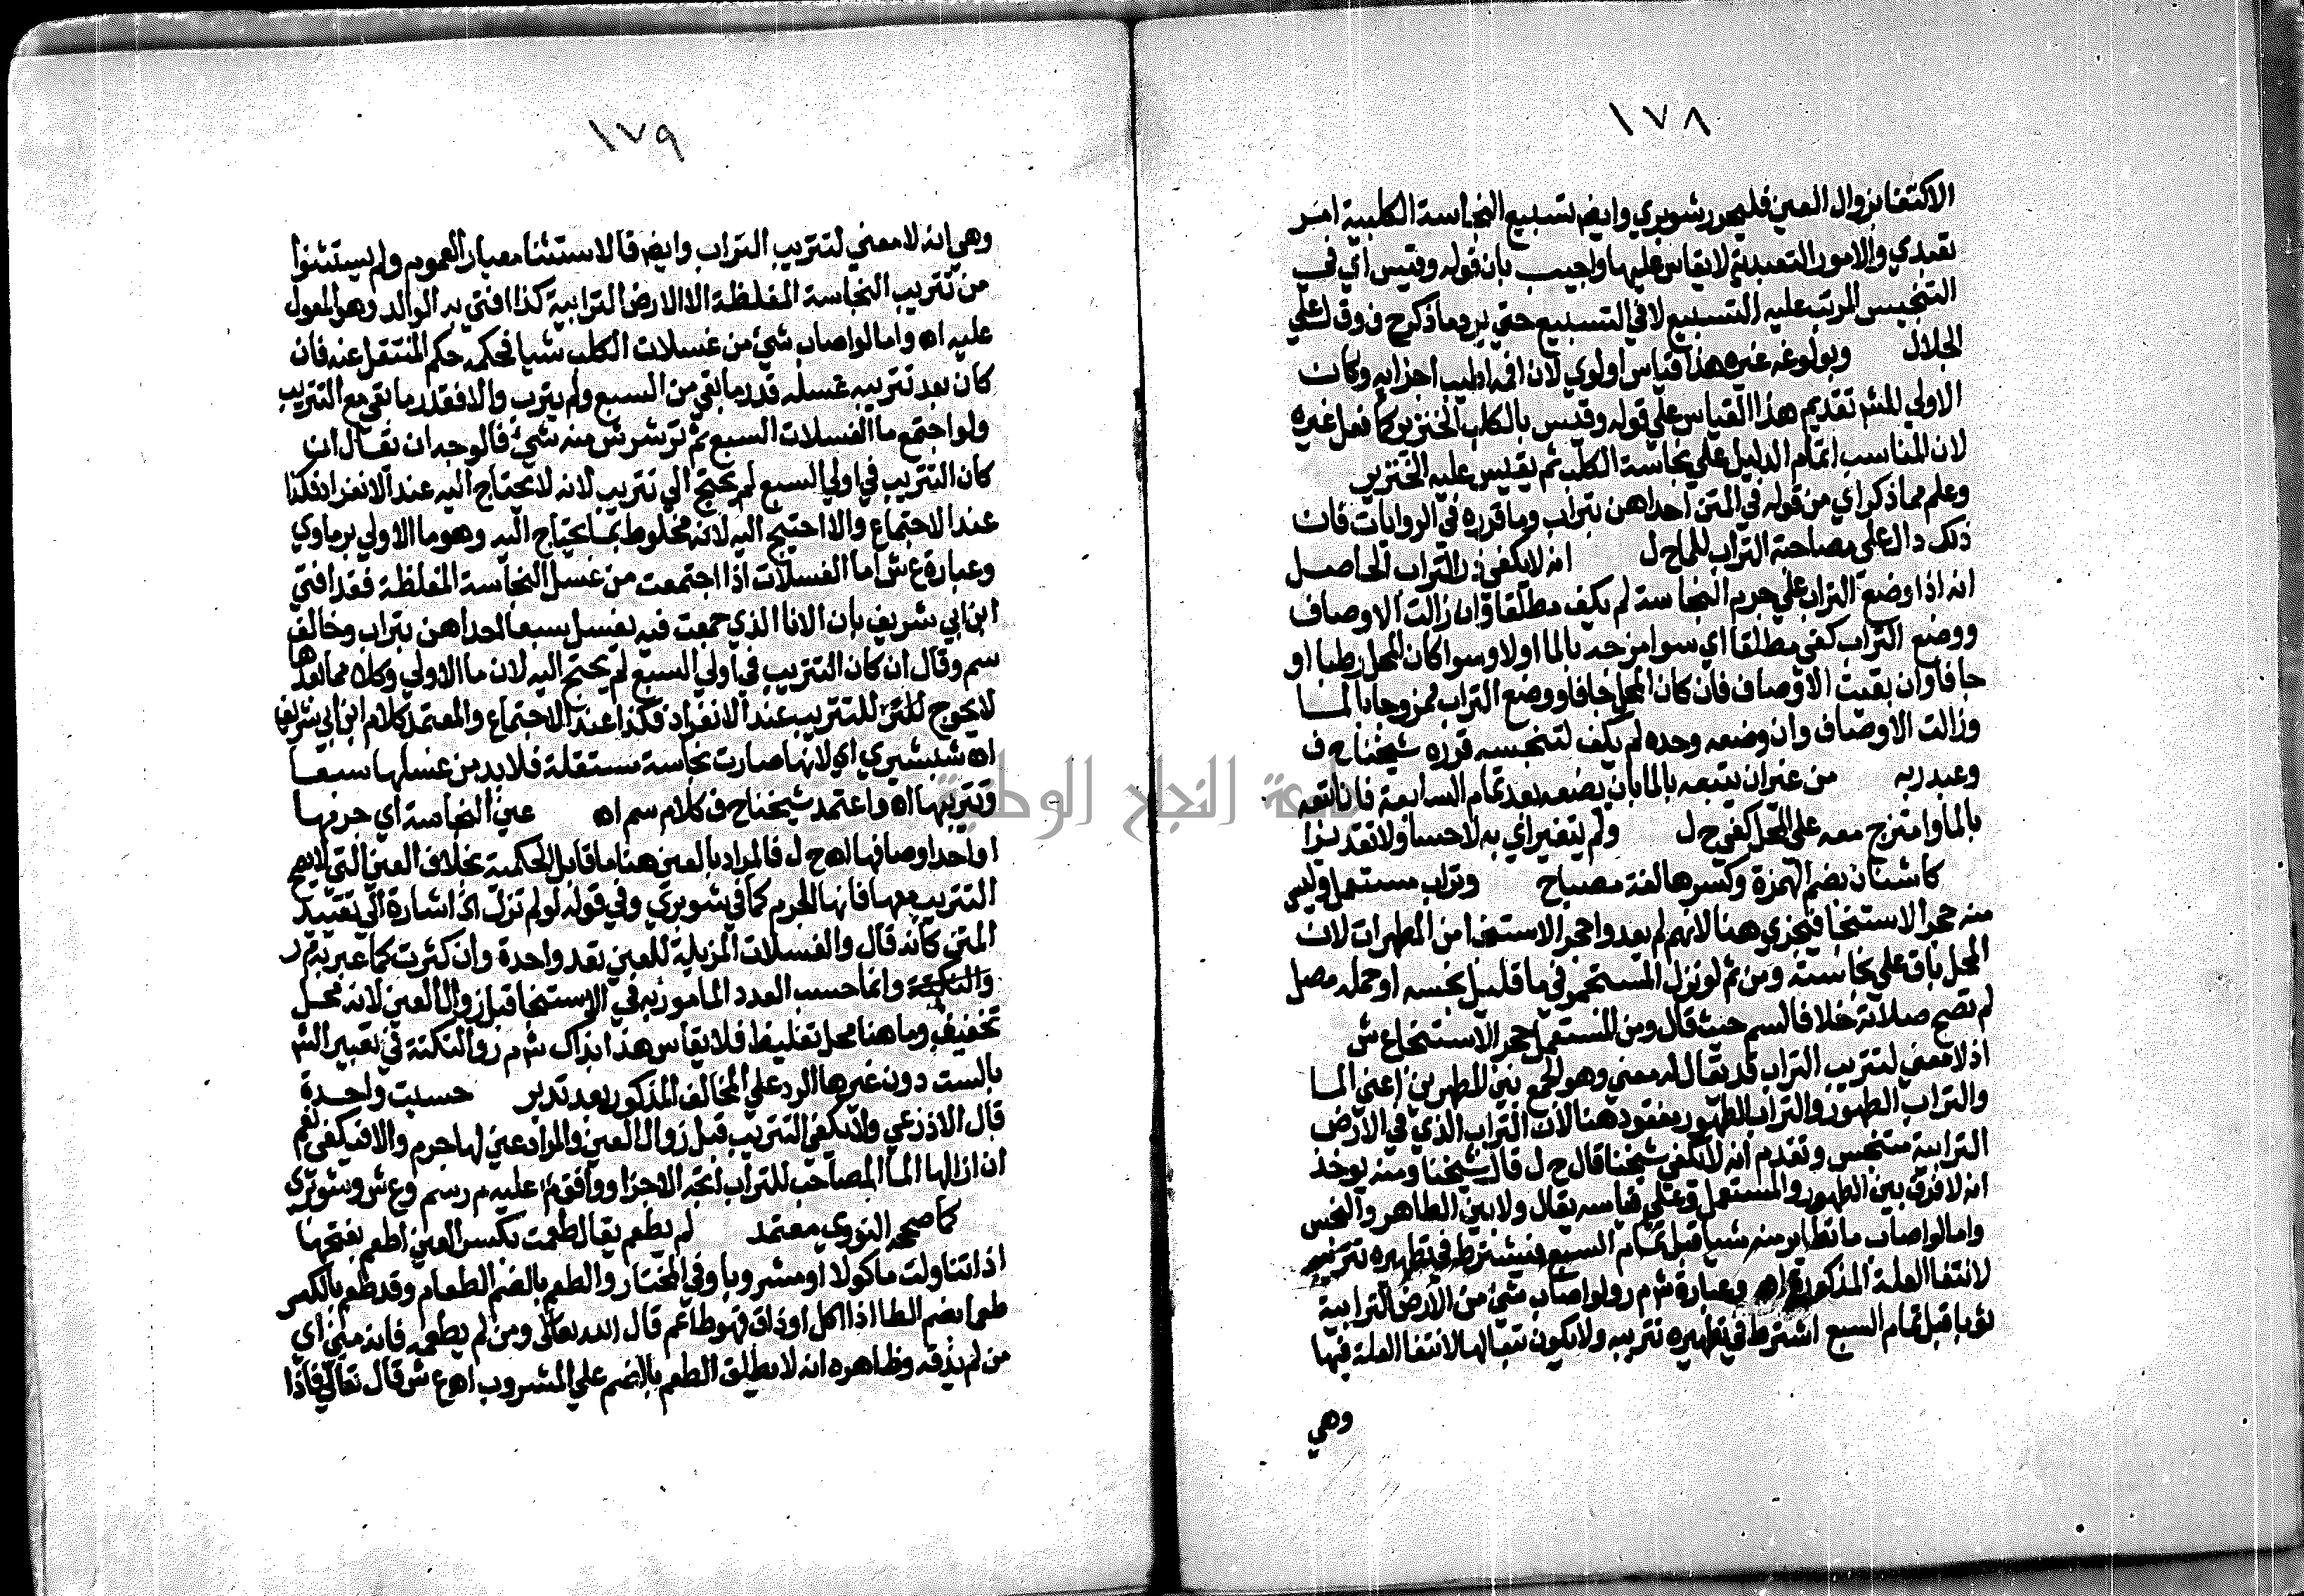 ١٧٨
الاكتفا بزوال العين فليحرر شوبري وايض تسبيع النجاسة الكلبية امر
تعبدي والامور التعبدية لا يقاس عليها واجيب بان قوله وقيس اي في
التنجيس المرتب عليه التسبيع لا في التسبيع حتي يرد ما ذكر ح ف وق ل علي
الجلال وبولوغه غيره هذا قياس اولوي لان فمه اطيب اجزايه وكان
الاولي للش تقديم هذا القياس علي قوله وقيس بالكلب الخنزير كما فعل غيره
لان المناسب اتمام الدليل علي نجاسة الكلب ثم يقيس عليه الخنزير
وعلم مما ذكر اي من قوله في المتن احداهن بتراب وما قرره في الروايات فان
ذلك دال علي مصاحبة التراب للماء ح ل انه لا يكفي ذر التراب الحاصل
انه اذا وضع التراب علي جرم النجاسة لم يكف مطلقا وان زالت الاوصاف
ووضع التراب كفي مطلقا اي سوا مزجه بالما اولا وسوا كان المحل رطبا او
جافا وان بقيت الاوصاف فان كان المحل جافا ووضع التراب ممزوجا بالما
وزالت الاوصاف وان وضعه وحده لم يكف لتنجسه قرره شيخنا ح ف
وعبد ربه من غير ان يتبعه بالما بان يضعه بعد تمام السابعة فان اتبعه
بالما وامتزج معه علي المحل كفي ح ل ولم يتغير اي به لا حسا ولا تقديرا
كاشنان بضم الهمزة وكسرها لغة مصباح وتراب مستعمل وليس
منه حجر الاستنجا فيجزي هنا لانهم لم يعدوا حجر الاستنجا من المطهرات لان
المحل باق علي نجاسته ومن ثم لو نزل المستجمر في ما قليل نجسه او حمله مصل
لم تصح صلاته خلافا لسم حيث قال ومن المستعمل حجر الاستنجا ع ش
اذ لا معني لتتريب التراب قد يقال له معني وهو الجمع بين المطهرين اعني الما
والتراب الطهور والتراب الطهور مفقود هنا لان التراب الذي في الارض
الترابية متنجس وتقدم انه لا يكفي شيخنا قال ح ل قال شيخنا ومنه يوخذ
انه لا فرق بين الطهور والمستعمل وعلي قياسه يقال ولا بين الطاهر والنجس
واما لو اصاب ما تطاير منه شيا قبل تمام السبع فيشترط في تطهيره تتريبه
لانتفا العلة المذكورة اه وعبارة ش م ر ولو اصاب شي من الارض الترابية
ثوبا قبل تمام السبع اشترط في تطهيره تتريبه ولا يكون تبعا لها لانتفا العلة فيها
وهي
١٧٩
وهي انه لا معني لتتريب التراب وايض فالاستثنا معيار العموم ولم يستثنوا
من تتريب النجاسة المغلظة الا الارض الترابية كذا افتي به الوالد وهو المعول
عليه اه واما لو اصاب شي من غسلات الكلب شيا فحكمه حكم المنتقل عنه فان
كان بعد تتريبه غسله قدر ما بقي من السبع ولم يترب والا فقدر ما بقي مع التتريب
ولو اجتمع ما الغسلات السبع ثم ترشرش منه شي فالوجه ان يقال ان
كان التتريب في اولي السبع لم يحتج الي تتريب لانه لا يحتاج اليه عند الانفراد فكذا
عند الاجتماع والا احتيج اليه لانه مخلوط بما يحتاج اليه وهو ما الاولي برماوي
وعبارة ع ش اما الغسلات اذا اجتمعت من غسل النجاسة المغلظة فقد افتي
ابن ابي شريف بان الانا الذي جمعت فيه يغسل سبعا احداهن بتراب وخالف
سم وقال ان كان التتريب في اولي السبع لم يحتج اليه لان ما الاولي وكلا مما بعدها
لا يحوج للتر للتتريب عند الانفراد فكذا عند الاجتماع والمعتمد كلام ابن ابي شريف
اه شبشيري اي لانها صارت نجاسة مستقلة فلا بد من غسلها سبعا
وتتريبها اه واعتمد شيخنا ح ف كلام سم اه عين النجاسة اي جرمها
او احد اوصافها اه ح ل فالمراد بالعين هنا ما قابل الحكمية بخلاف العين التي لا يصح
التتريب معها فانها الجرم كما في شوبري وفي قوله لو لم تزل الخ اشارة الي تقييد
المتن كانه قال والغسلات المزيلة للعين تعد واحدة وان كثرت كما عبر به م ر
والنكتة وانما حسب العدد المامور به في الاستنجا قبل زوال العين لانه محل
تخفيف وما هنا محل تغليظ فلا يقاس هذا بذاك ش م ر والنكتة في تعبير الش
بالست دون غيرها الرد علي المخالف المذكور بعد تدبر حسبت واحدة
قال الاذرعي ولا يكفي التتريب قبل زوال العين والمراد عين لها جرم والا فيكفي نعم
ان ازالها الما المصاحب للتراب اتجه الاجزا ووافق عليه م ر سم وع ش وشوبري
كما صححه النووي معتمد لم يطعم يقال طعمت بكسر العين اطعم بفتحها
اذا تناولت ماكولا او مشروبا وفي المختار والطعم بالضم الطعام وقد طعم بالكسر
طعما بضم الطا اذا اكل او ذاق فهو طاعم قال الله تعالي ومن لم يطعمه فانه مني اي
من لم يذقه وظاهره انه لا يطلق الطعم بالضم علي المشروب اه ع ش قال تعالي فاذا
جامعة النجاح الوطنية